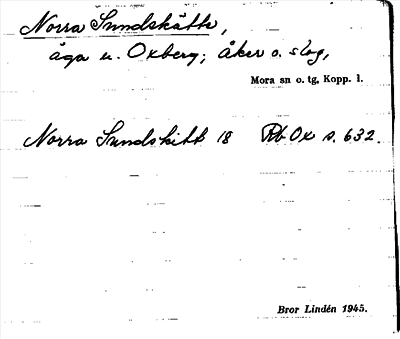 Norra Sundskätte,
äga u. Oxberg; åker o. slog,
Mora sn o. tg, Kopp. l.
Norra Sundskitt 18 Rb Ox s. 632.
Bror Lindén 1945.